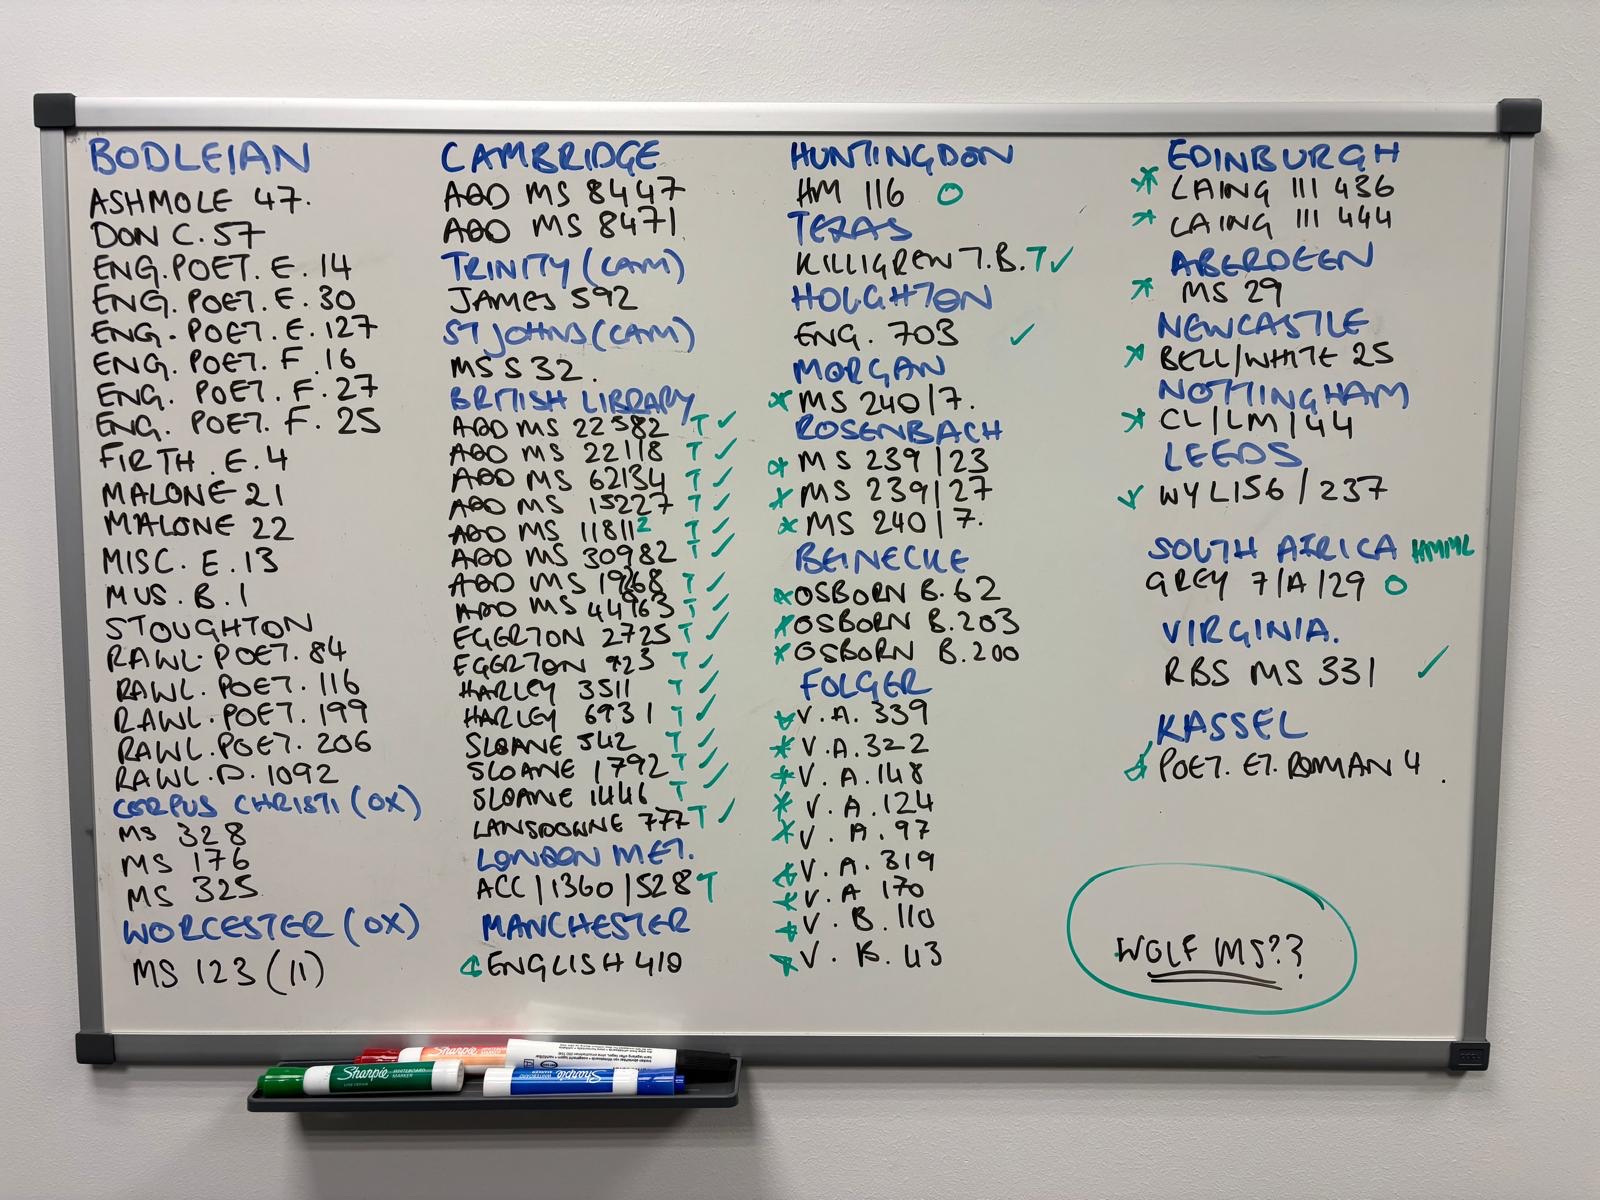 BODLEIAN
ASHMOLE 47.
DON C. 57
ENG. POET. E. 14
ENG. POET. E. 30
ENG. POET. E. 127
ENG. POET. F. 16
ENG. POET. F. 27
ENG. POET. F. 25
FIRTH. E. 4
MALONE 21
MALONE 22
MISC. E. 13
MUS. B. 1
STOUGHTON
RAWL. POET. 84
RAWL. POET. 116
RAWL. POET. 199
RAWL. POET. 206
RAWL. D. 1092
CORPUS CHRISTI (OX)
MS 328
MS 176
MS 325
WORCESTER (OX)
MS 123 (11)
CAMBRIDGE
ADD MS 8447
ADD MS 8471
TRINITY (CAM)
JAMES 592
ST JOHNS (CAM)
MS S 32.
BRITISH LIBRARY
ADD MS 22582 T ✓
ADD MS 22118 T ✓
ADD MS 62134 T ✓
ADD MS 15227 T ✓
ADD MS 118112 T ✓
ADD MS 30982 T ✓
ADD MS 19268 T ✓
ADD MS 44963 T ✓
EGERTON 2725 T ✓
EGERTON 923 T ✓
HARLEY 3511 T ✓
HARLEY 6931 T ✓
SLOANE 542 T ✓
SLOANE 1792 T ✓
SLOANE 1446 T ✓
LANSDOWNE 777 T ✓
LONDON MET.
ACC/1360/528 T
MANCHESTER
ENGLISH 410
HUNTINGDON
HM 116 O
TEXAS
KILLIGREW T.B. T ✓
HOUGHTON
ENG. 703 ✓
MORGAN
* MS 240/7.
ROSENBACH
* MS 239/23
* MS 239/27
* MS 240/7.
BEINECKE
* OSBORN B. 62
* OSBORN B. 203
* OSBORN B. 200
FOLGER
* V. A. 339
* V. A. 322
* V. A. 148
* V. A. 124
* V. A. 97
* V. A. 319
* V. A 170
* V. B. 110
* V. B. 43
EDINBURGH
* LAING III 436
* LAING III 444
ABERDEEN
* MS 29
NEWCASTLE
* BELL/WHITE 25
NOTTINGHAM
* CL/LM/44
LEEDS
* WYL156/237
SOUTH AFRICA HMML
GREY 7/A/29 O
VIRGINIA.
RBS MS 331 ✓
KASSEL
* POET. ET. ROMAN 4.
WOLF MS??
Sharpie WHITEBOARD MARKER
Sharpie WHITEBOARD MARKER
Sharpie